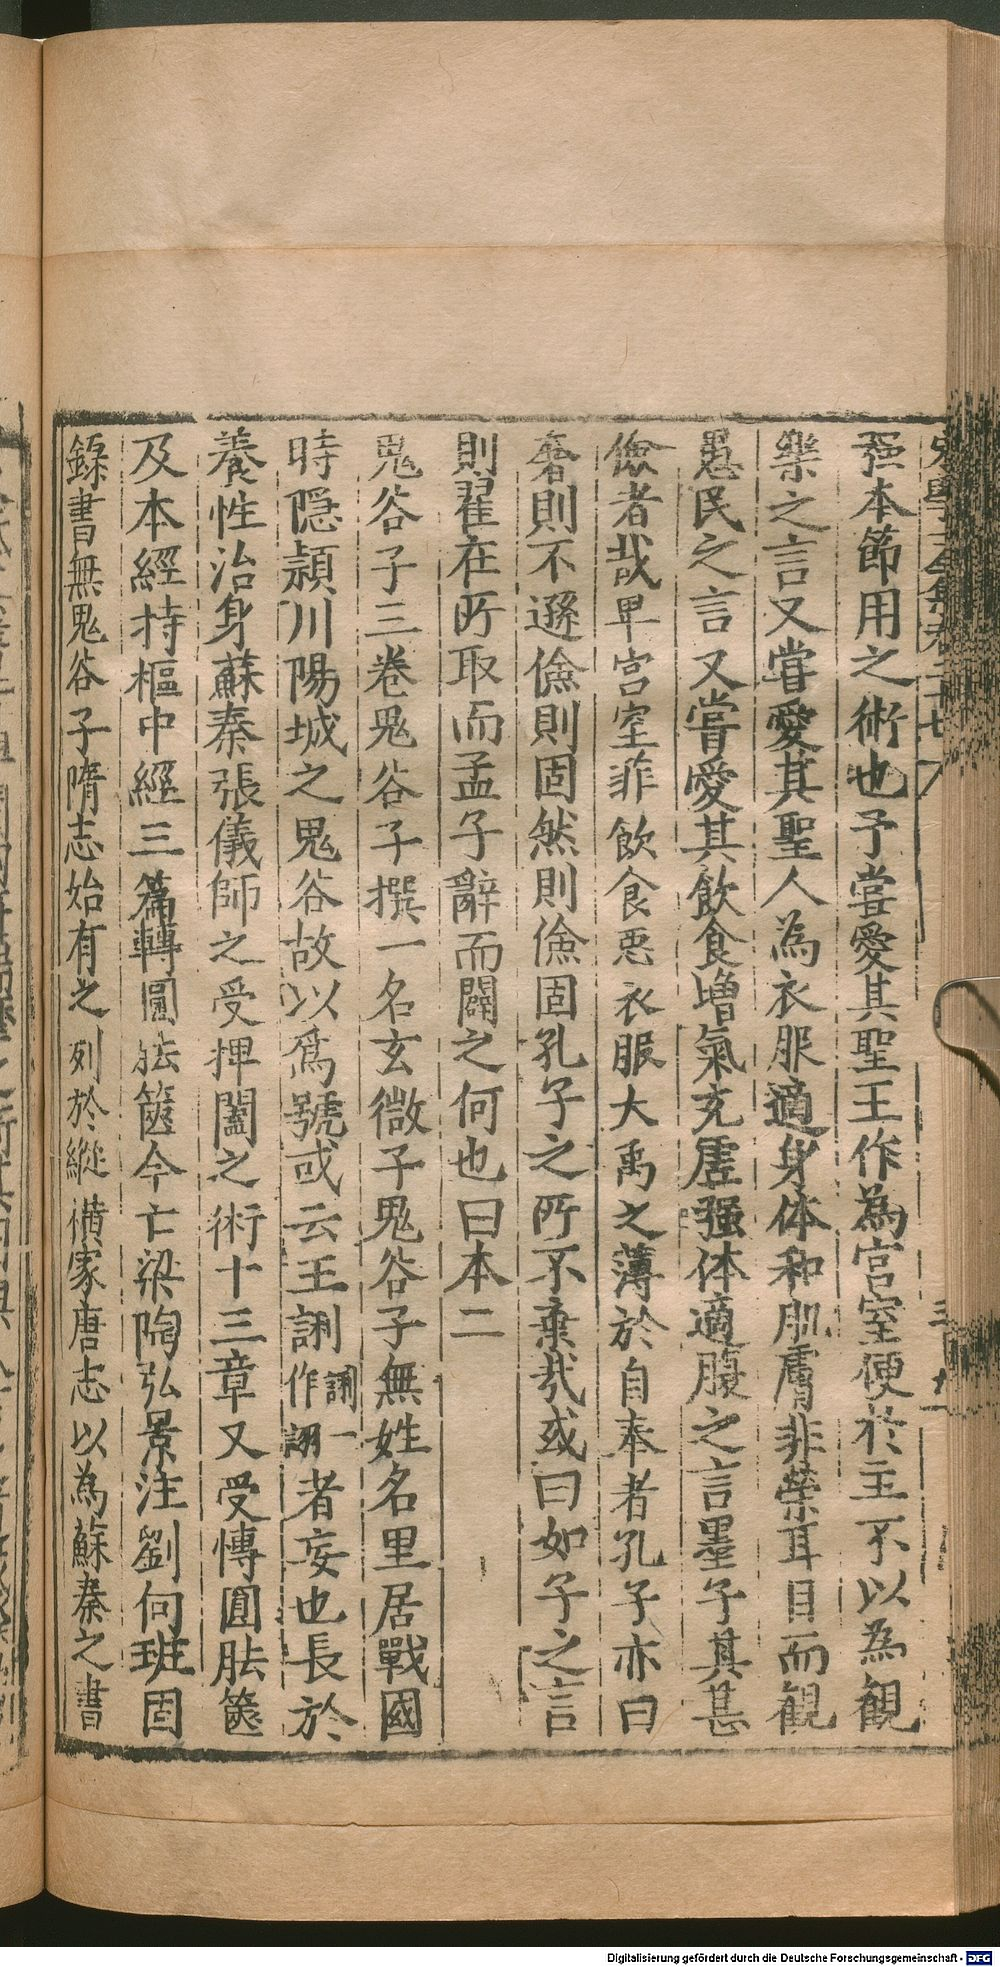 强本節用之術也予嘗愛其聖王作為宫室便於主不以為觀
樂之言又嘗愛其聖人為衣服適身体和肌膚非榮耳目而觀
愚民之言又嘗愛其飲食增氣充虛强体適腹之言墨子其甚
儉者哉卑宫室菲飲食惡衣服大禹之薄於自奉者孔子亦曰
奢則不遜儉則固然則儉固孔子之所不棄哉或曰如子之言
則翟在所取而孟子辭而闢之何也曰本二
鬼谷子三卷鬼谷子撰一名玄微子鬼谷子無姓名里居戰國
時隠潁川陽城之鬼谷故以爲號或云王誗誗一作詡者妄也長於
養性治身蘇秦張儀師之受捭闔之術十三章又受轉圓胠篋
及本經持樞中經三篇轉圓胠篋今亡梁陶弘景注劉向班固
錄書無鬼谷子隋志始有之列於縱横家唐志以為蘇秦之書
Digitalisierung gefördert durch die Deutsche Forschungsgemeinschaft - DFG